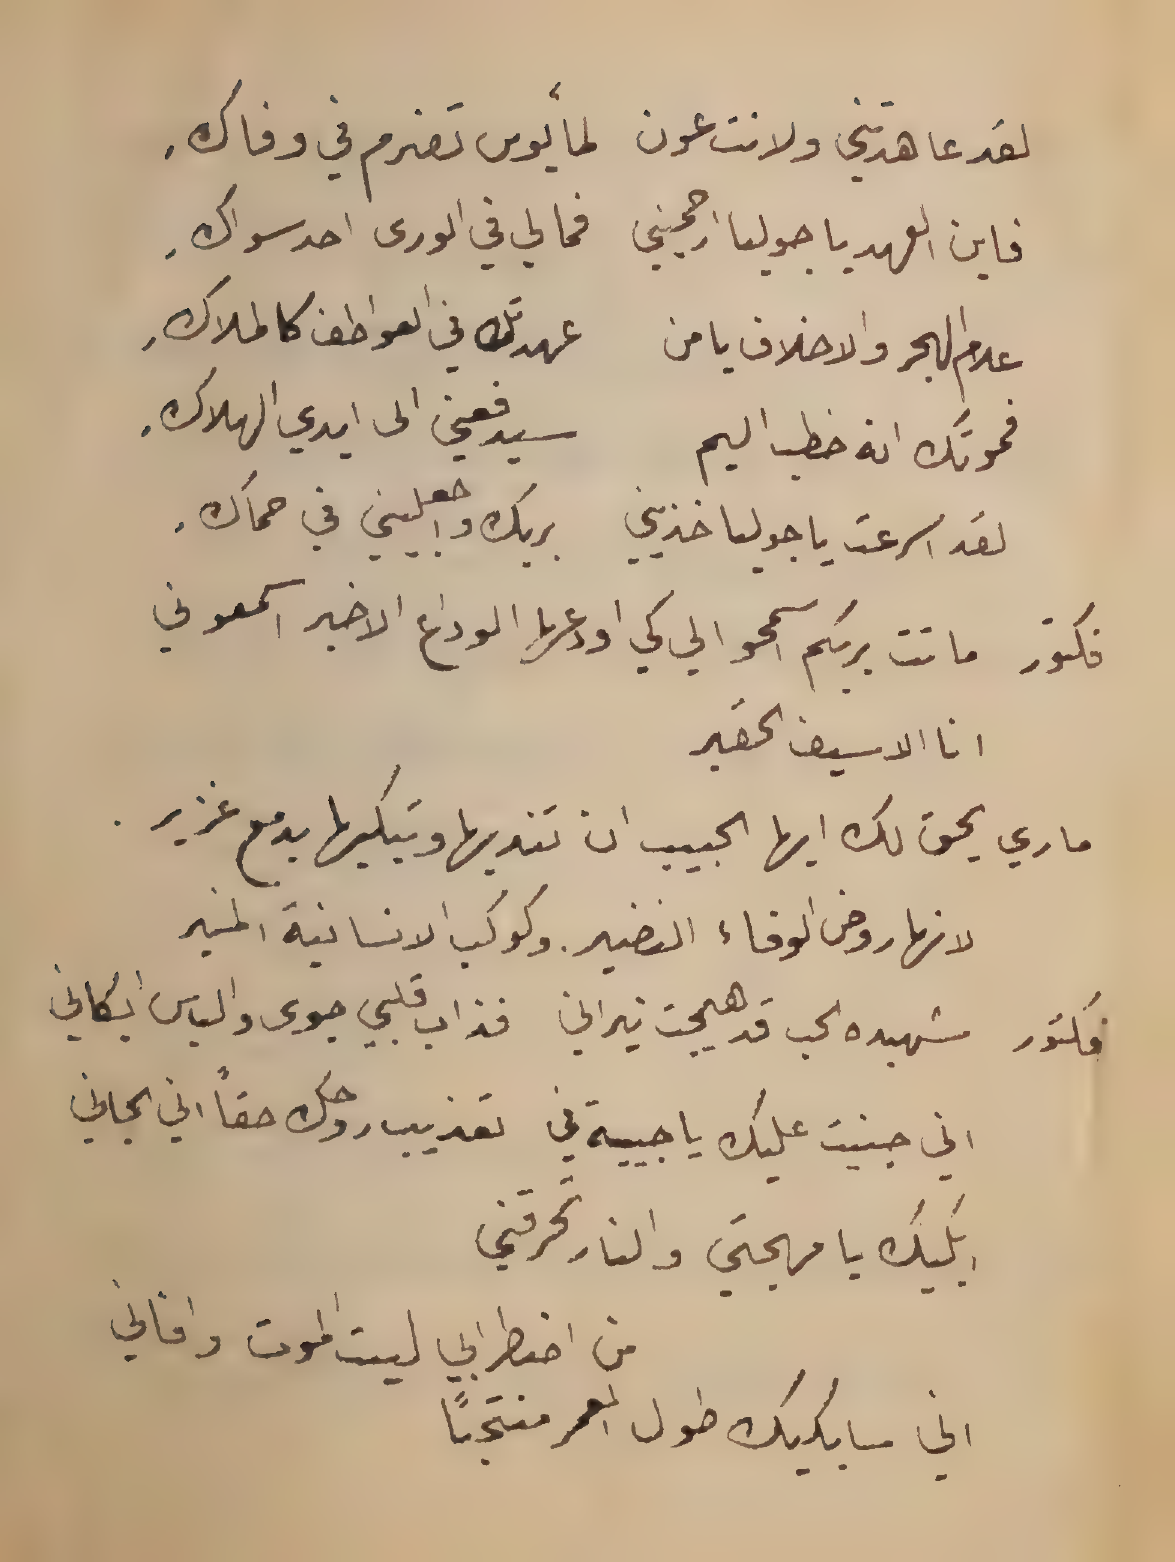 لقد عاهدتني ولانت عون لمأيوس تضرم في وفاك
فاين العهد يا جوليا ارحميني فمالي في الورى احد سواك
علام الهجر والاخلاف يا من عهدتك في العواطف كالملاك
فموتك انه خطب اليم سيدفعني الى ايدي الهلاك
لقد اسرعت يا جوليا خذيني بربك واجعليني في حماك
فكتور ماتت بربكم اسمحوا لي كي اودعها الوداع الاخير اسمعوني
انا الاسيف الحقير
ماري يحق لك ايها الحبيب ان تندبها وتبكيها بدمع غزير .
لانها روض الوفاء النضير . وكوكب الانسانية المنير
فكتور شهيده الحب قد هيجت نيراني فذاب قلبي جوى والياس ابكاني
اني جنيت عليك يا حبيبة في تعذيب روحك حقاً اني الجاني
ابكيك يا مهجتي والنار تحرقني
من اضطرابي ليت الموت وافاني
اني سابكيك طول العمر منتحبًا